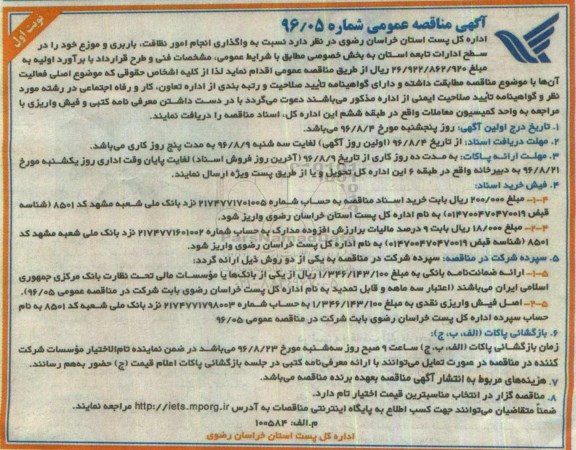 نوبت اول
آگهی مناقصه عمومی شماره ۹۶/۰۵
اداره کل پست استان خراسان رضوی در نظر دارد نسبت به واگذاری انجام امور نظافت، باربری و موزع خود را در
سطح ادارات تابعه استان به بخش خصوصی مطابق با شرایط عمومی، مشخصات فنی و طرح قرارداد با برآورد اولیه به
مبلغ ۲۶/۹۲۲/۸۶۲/۹۲۰ ریال از طریق مناقصه عمومی اقدام نماید لذا از کلیه اشخاص حقوقی که موضوع اصلی فعالیت
آن‌ها با موضوع مناقصه مطابقت داشته و دارای گواهینامه تأیید صلاحیت و رتبه بندی از اداره تعاون، کار و رفاه اجتماعی در رشته مورد
نظر و گواهینامه تأیید صلاحیت ایمنی از اداره مذکور می‌باشند دعوت می‌گردد با در دست داشتن معرفی نامه کتبی و فیش واریزی با
مراجعه به واحد کمیسیون معاملات واقع در طبقه ششم این اداره کل، اسناد مناقصه را دریافت نمایند.
۱. تاریخ درج اولین آگهی: روز پنجشنبه مورخ ۹۶/۸/۴ می‌باشد.
۲. مهلت دریافت اسناد: از تاریخ ۹۶/۸/۴ (اولین روز آگهی) لغایت سه شنبه ۹۶/۸/۹ به مدت پنج روز کاری می‌باشد.
۳. مهلت ارائه پاکات: به مدت ده روز کاری از تاریخ ۹۶/۸/۹ (آخرین روز فروش اسناد) لغایت پایان وقت اداری روز یکشنبه مورخ
۹۶/۸/۲۱ به دبیرخانه واقع در طبقه ۶ این اداره کل تحویل و یا از طریق پست ویژه ارسال نمایند.
۴. فیش خرید اسناد:
۴-۱- مبلغ ۲۰۰/۰۰۰ ریال بابت خرید اسناد مناقصه به حساب شماره ۲۱۷۴۷۷۱۷۰۱۰۰۵ نزد بانک ملی شعبه مشهد کد ۸۵۰۱ (شناسه
قبض ۰۱۴۷۰۰۴۷۰۴۷۰۰۱۹) به نام اداره کل پست استان خراسان رضوی واریز شود.
۴-۲- مبلغ ۱۸/۰۰۰ ریال بابت ۹ درصد مالیات برارزش افزوده مدارک به حساب شماره ۲۱۷۴۷۷۱۶۰۱۰۰۲ نزد بانک ملی شعبه مشهد کد
۸۵۰۱ (شناسه قبض ۰۱۴۷۰۰۴۷۰۴۷۰۰۱۹) به نام اداره کل پست خراسان رضوی واریز شود.
۵. سپرده شرکت در مناقصه: سپرده شرکت در مناقصه به یکی از دو روش ذیل ارائه گردد:
۵-۱- ارائه ضمانت‌نامه بانکی به مبلغ ۱/۳۴۶/۱۴۳/۱۰۰ ریال از یکی از بانک‌ها یا مؤسسات مالی تحت نظارت بانک مرکزی جمهوری
اسلامی ایران می‌باشند (اعتبار سه ماهه و قابل تمدید به نام اداره کل پست خراسان رضوی بابت شرکت در مناقصه عمومی ۹۶/۰۵).
۵-۲- اصل فیش واریزی نقدی به مبلغ ۱/۳۴۶/۱۴۳/۱۰۰ به حساب شماره ۲۱۷۴۷۷۱۷۹۸۰۰۳ نزد بانک ملی شعبه کد ۸۵۰۱ به نام
حساب سپرده اداره کل پست خراسان رضوی بابت شرکت در مناقصه عمومی ۹۶/۰۵
۶. بازگشائی پاکات (الف، ب، ج):
زمان بازگشائی پاکات (الف، ب، ج) ساعت ۹ صبح روز سه‌شنبه مورخ ۹۶/۸/۲۳ می‌باشد در ضمن نماینده تام‌الاختیار مؤسسات شرکت
کننده در مناقصه در صورت تمایل می‌توانند با ارائه معرفی‌نامه کتبی در جلسه بازگشائی پاکات اعلام قیمت (ج) حضور به‌هم رسانند.
۷. هزینه‌های مربوط به انتشار آگهی مناقصه بعهده برنده مناقصه می‌باشد.
۸. مناقصه گزار در انتخاب مناسبترین قیمت اختیار تام دارد.
ضمناً متقاضیان می‌توانند جهت کسب اطلاع به پایگاه اینترنتی مناقصات به آدرس http://iets.mporg.ir مراجعه نمایند.
م.الف: ۱۰۰۵۸۴
اداره کل پست استان خراسان رضوی